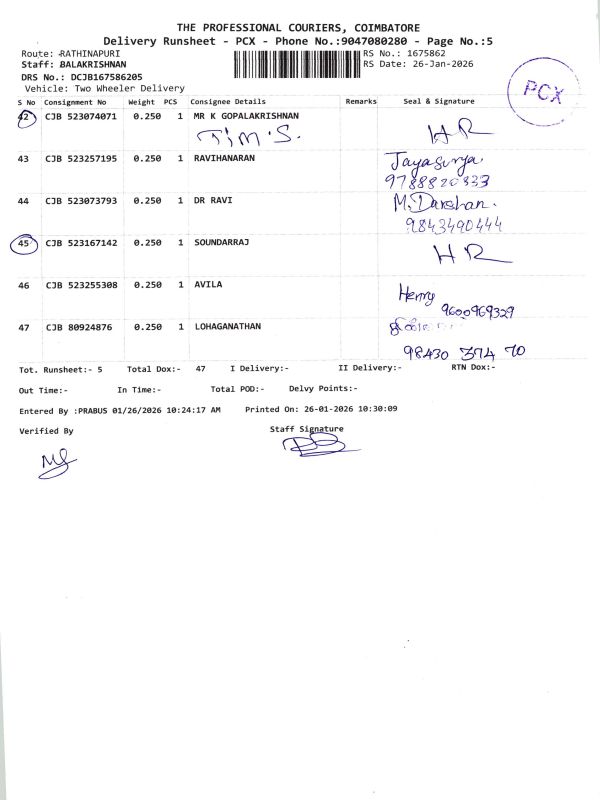 THE PROFESSIONAL COURIERS, COIMBATORE
Delivery Runsheet - PCX - Phone No.:9047080280 - Page No.:5
Route: RATHINAPURI RS No.: 1675862
Staff: BALAKRISHNAN RS Date: 26-Jan-2026
DRS No.: DCJB167586205
Vehicle: Two Wheeler Delivery
PCX
S No Consignment No Weight PCS Consignee Details Remarks Seal & Signature
42 CJB 523074071 0.250 1 MR K GOPALAKRISHNAN
TIM'S. HR
43 CJB 523257195 0.250 1 RAVIHANARAN Jayasurya
9788820333
44 CJB 523073793 0.250 1 DR RAVI M. Darshan.
9843490444
45 CJB 523167142 0.250 1 SOUNDARRAJ HR
46 CJB 523255308 0.250 1 AVILA Henry
9600969329
47 CJB 80924876 0.250 1 LOHAGANATHAN
98430 374 70
Tot. Runsheet:- 5 Total Dox:- 47 I Delivery:- II Delivery:- RTN Dox:-
Out Time:- In Time:- Total POD:- Delvy Points:-
Entered By :PRABUS 01/26/2026 10:24:17 AM Printed On: 26-01-2026 10:30:09
Verified By Staff Signature